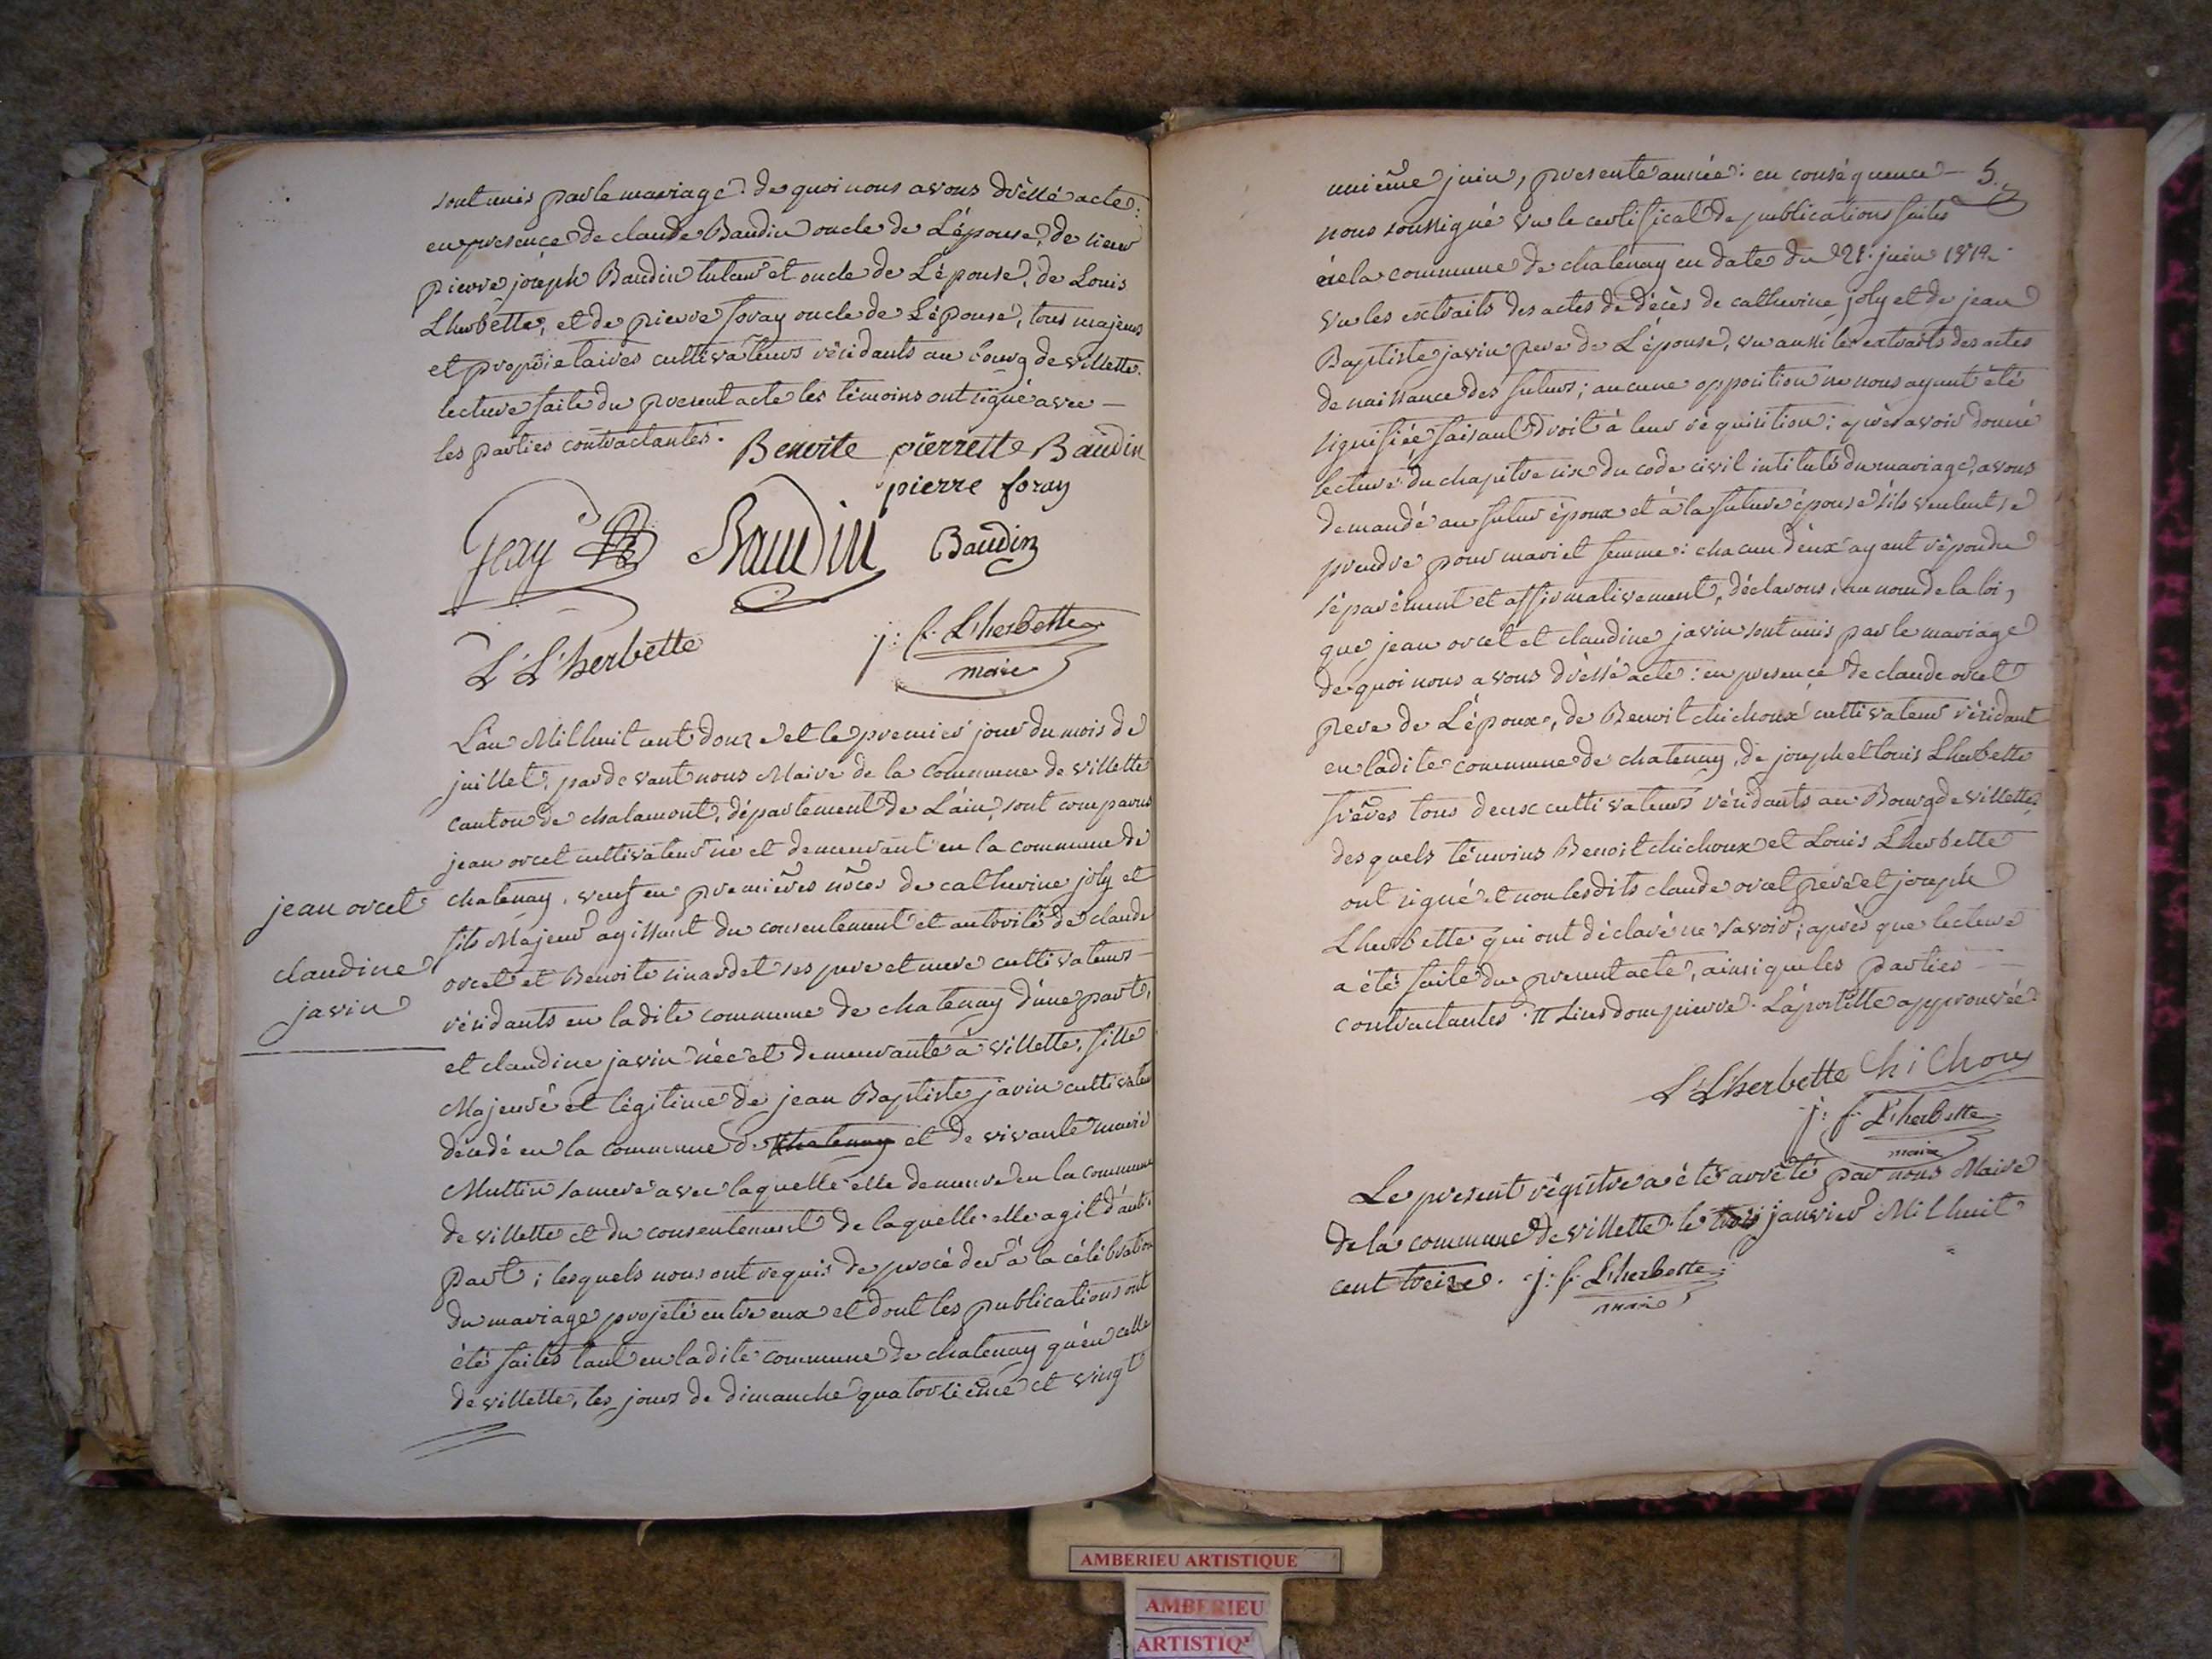 sont unis par le mariage. de quoi nous avons dressé acte:
en presence de claude Baudin oncle de L'épouse, de sieur
pierre joseph Baudin tuteur et oncle de L'épouse, de Louis
Lherbette, et de pierre foray oncle de L'épouse, tous majeurs
et propriétaires cultivateurs résidants au bourg de villette.
lecture faite du present acte les témoins ont signé avec —
les parties contractantes. Benoite pierrette Baudin
pierre foray
Baudin Baudin
L. L'herbette j: f. L'herbette
maire
L'an Mil huit cent douze et le premier jour du mois de
juillet, pardevant nous Maire de la Commune de villette
canton de chalamont, département de L'ain, sont comparus
jean orcet cultivateur né et demeurant en la commune de
jean orcet
chatenay, veuf en premières nôces de catherine joly et
fils Majeur agissant du consentement et autorité de claude
claudine
javin
orcet et Benoite sinardet ses pere et mere cultivateurs —
résidants en ladite commune de chatenay d'une part,
et claudine javin née et demeurante à villette, fille
Majeure et légitime de jean Baptiste javin cultivateur
décédé en la commune de chatenay et de vivante marie
Muttin sa mere avec laquelle elle demeure en la commune
de villette et du consentement de laquelle elle agit d'autre
part; lesquels nous ont requis de procéder à la célébration
du mariage projeté entre eux et dont les publications ont
été faites tant en ladite commune de chatenay qu'en celle
de villette, les jours de dimanche quatorzième et vingt
5.
unième juin, presente année: en conséquence —
nous soussigné vu le certificat de publications faites
en la commune de chatenay en date du 21. juin 1812.
vu les extraits des actes de décès de catherine joly et de jean
Baptiste javin pere de L'épouse, vu aussi les extraits des actes
de naissance des futurs; aucune opposition ne nous ayant été
signifiée faisant droit à leur réquisition; après avoir donné
lecture du chapitre six du code civil intitulé du mariage, avons
demandé au futur époux et à la future épouse s'ils veulent se
prendre pour mari et femme: chacun d'eux ayant répondu
séparément et affirmativement, déclarons, au nom de la loi,
que jean orcet et claudine javin sont unis par le mariage
de quoi nous avons dressé acte: en presence de claude orcet
pere de L'époux, de Benoit chichoux cultivateur résidant
en ladite commune de chatenay, de joseph et louis Lherbette
frères tous deux cultivateurs résidants au Bourg de villette,
desquels témoins Benoit chichoux et Louis Lherbette
ont signé et non lesdits claude orcet pere et joseph
Lherbette qui ont déclaré ne savoir; après que lecture
a été faite du present acte, ainsi que les parties —
contractantes. dompierre. L'apostille approuvée.
L. L'herbette Chichoux
j: f. L'herbette
maire
Le present régistre a été arrêté par nous Maire
de la commune de villette le trois janvier Mil huit
cent treize. j: f. L'herbette
maire
AMBERIEU ARTISTIQUE
AMBERIEU
ARTISTIQ